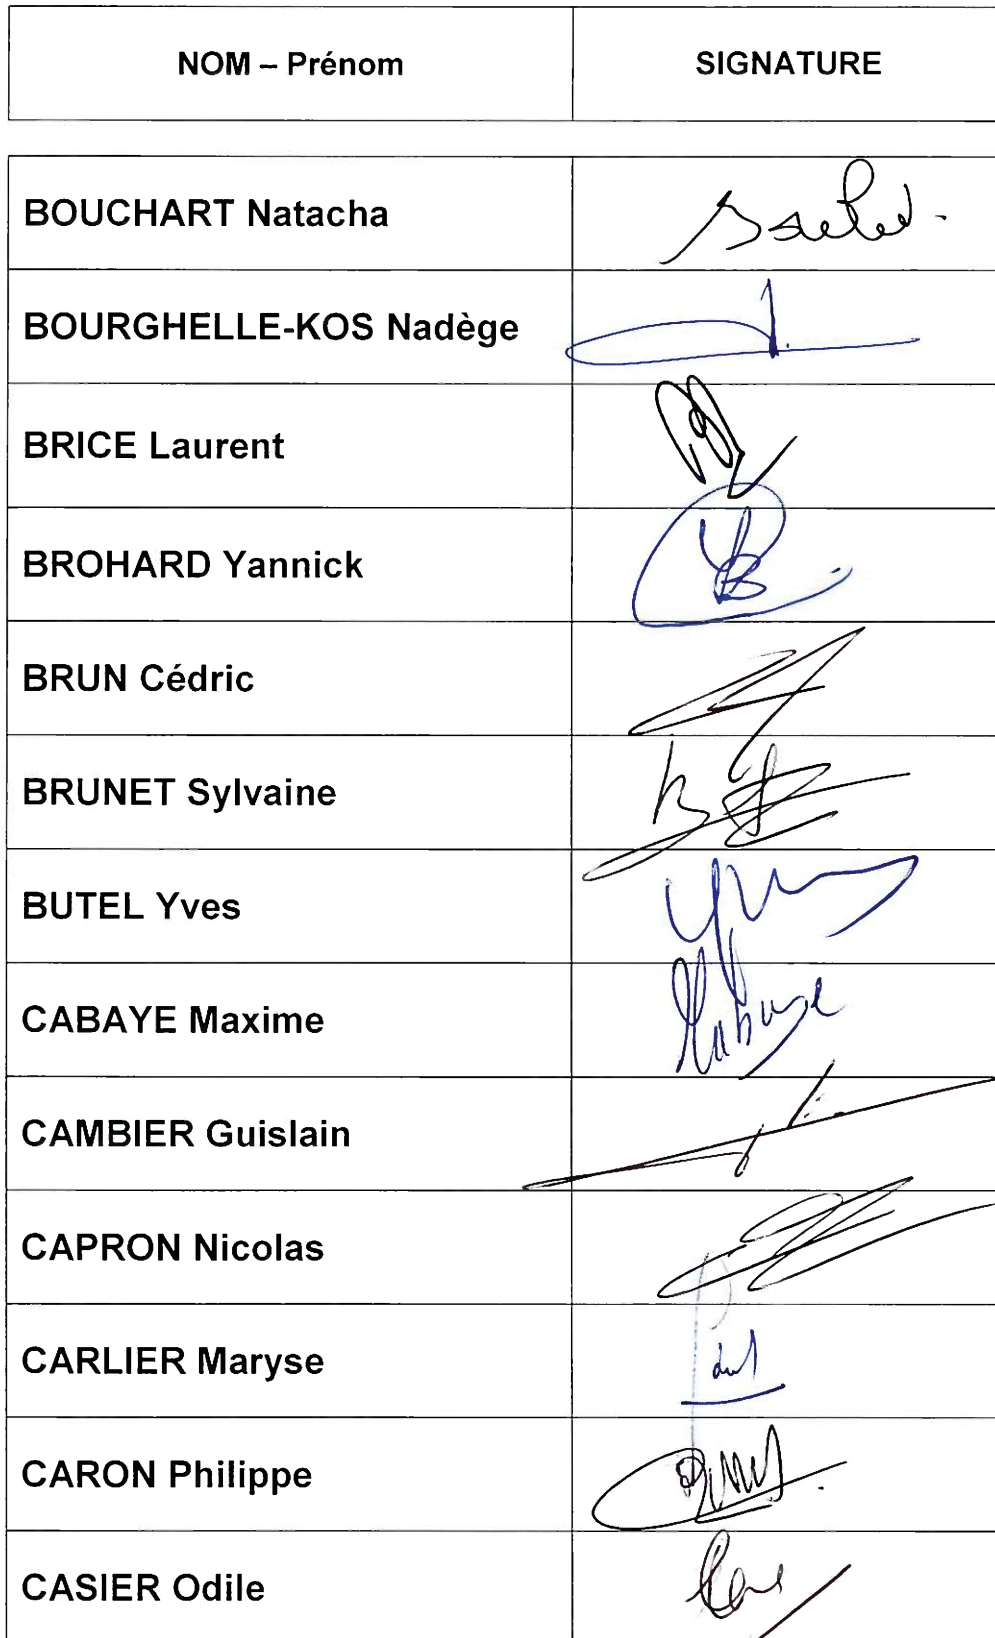 NOM – Prénom SIGNATURE
BOUCHART Natacha
BOURGHELLE-KOS Nadège
BRICE Laurent
BROHARD Yannick
BRUN Cédric
BRUNET Sylvaine
BUTEL Yves
CABAYE Maxime
CAMBIER Guislain
CAPRON Nicolas
CARLIER Maryse
CARON Philippe
CASIER Odile